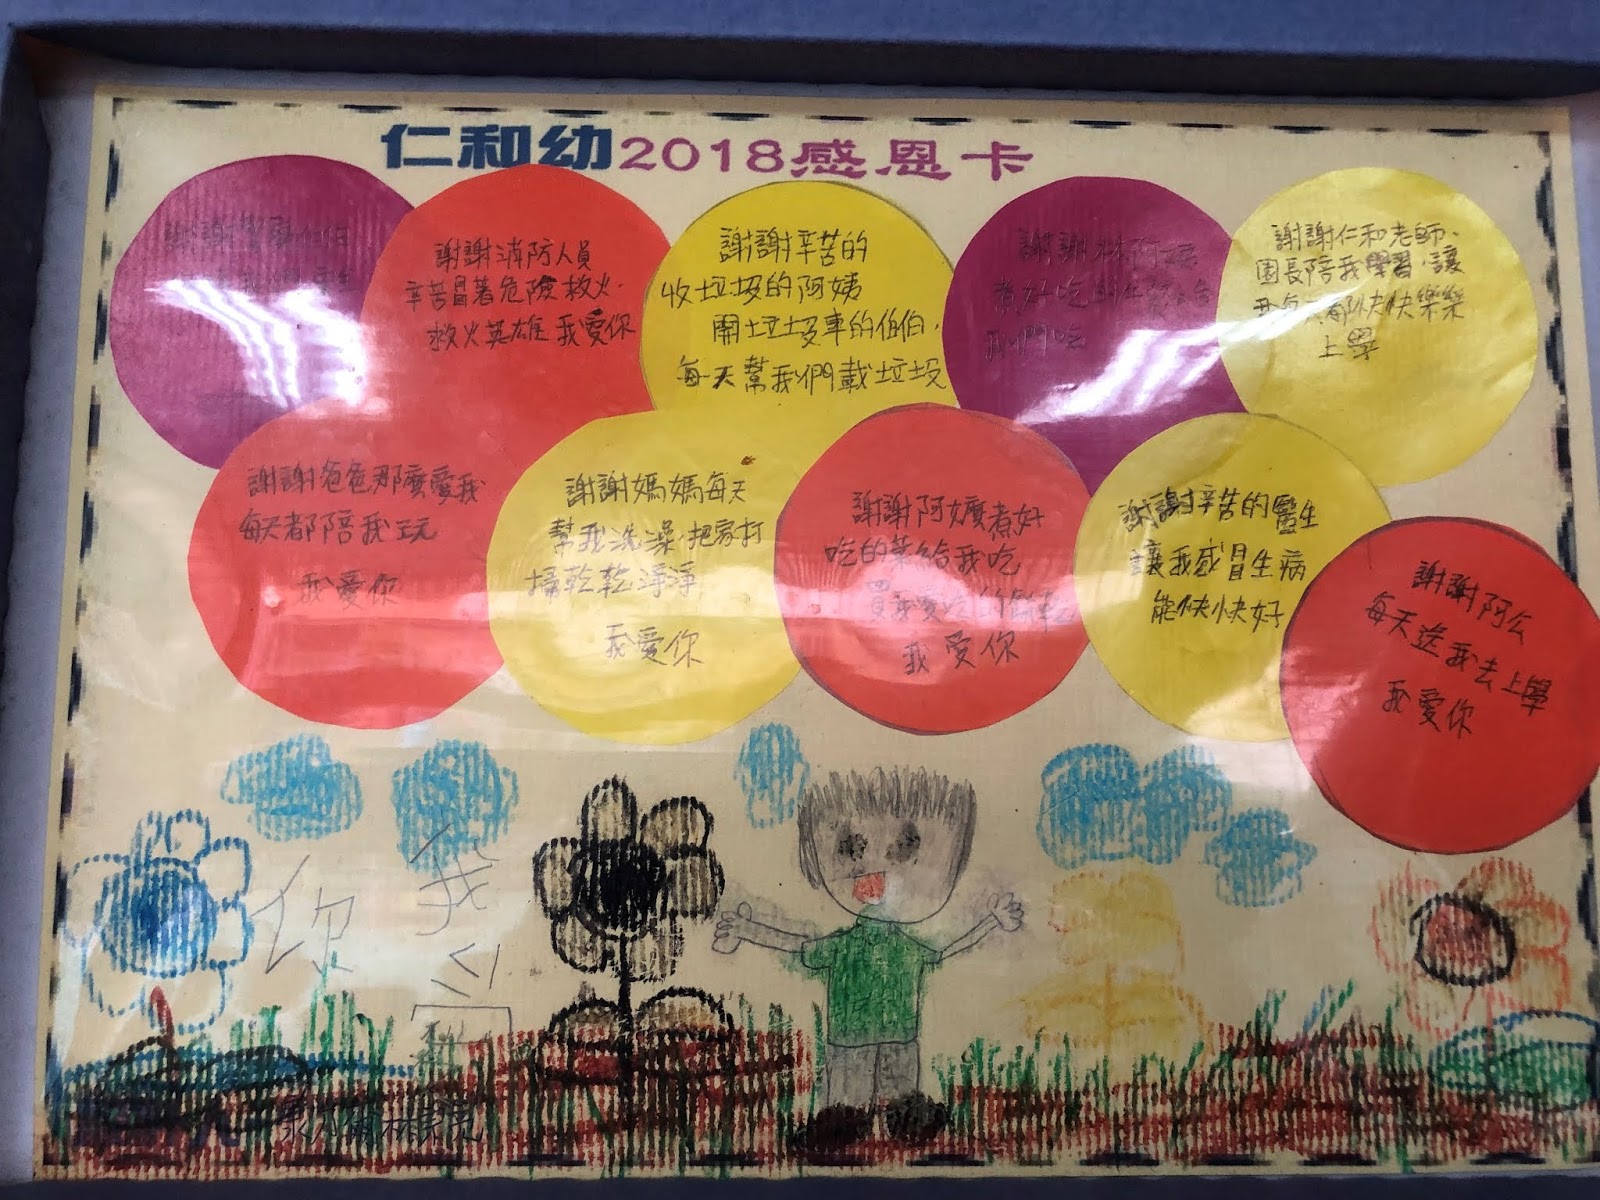 仁和幼2018感恩卡
謝謝警察伯伯
謝謝消防人員
辛苦冒著危險救火.
救火英雄 我愛你
謝謝辛苦的
收垃圾的阿姨
開垃圾車的伯伯.
每天幫我們載垃圾
謝謝林阿姨
煮好吃的
謝謝仁和老師.
園長陪我學習.讓
我每天都快快樂樂
上學
謝謝爸爸那麼愛我
每天都陪我玩
我愛你
謝謝媽媽每天
幫我洗澡.把家打
掃乾乾淨淨
我愛你
謝謝阿嬤煮好
吃的菜給我吃
買我愛吃的餅乾
我愛你
謝謝辛苦的醫生
讓我感冒生病
能快快好
謝謝阿公
每天送我去上學
我愛你
我
你